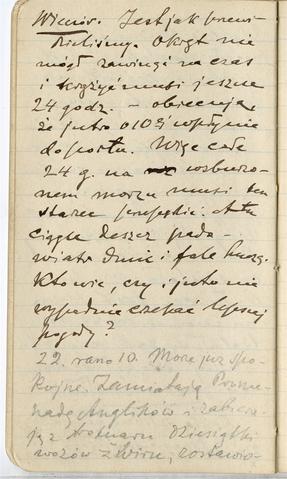 Wieczór. Jest jak przewi-
dzieliśmy. Okręt nie
mógł zawinąć na czas
i krążyć musi jeszcze
24 godz. – obiecują,
że jutro o 10ej wpłynie
do portu. Więc całe
24 g. na wzburzo-
nem morzu musi ten
statek przepędzić. A tu
ciągle deszcz pada –
wiatr dmie i fale huczą.
Kto wie, czy i jutro nie
wypadnie czekać lepszej
pogody?
22. rano 10. Morze już spo-
kojne. Zamiatają Prome-
nadę Anglików i zabiera-
ją z trotuaru dziesiątki
wozów żwiru, zostawio-